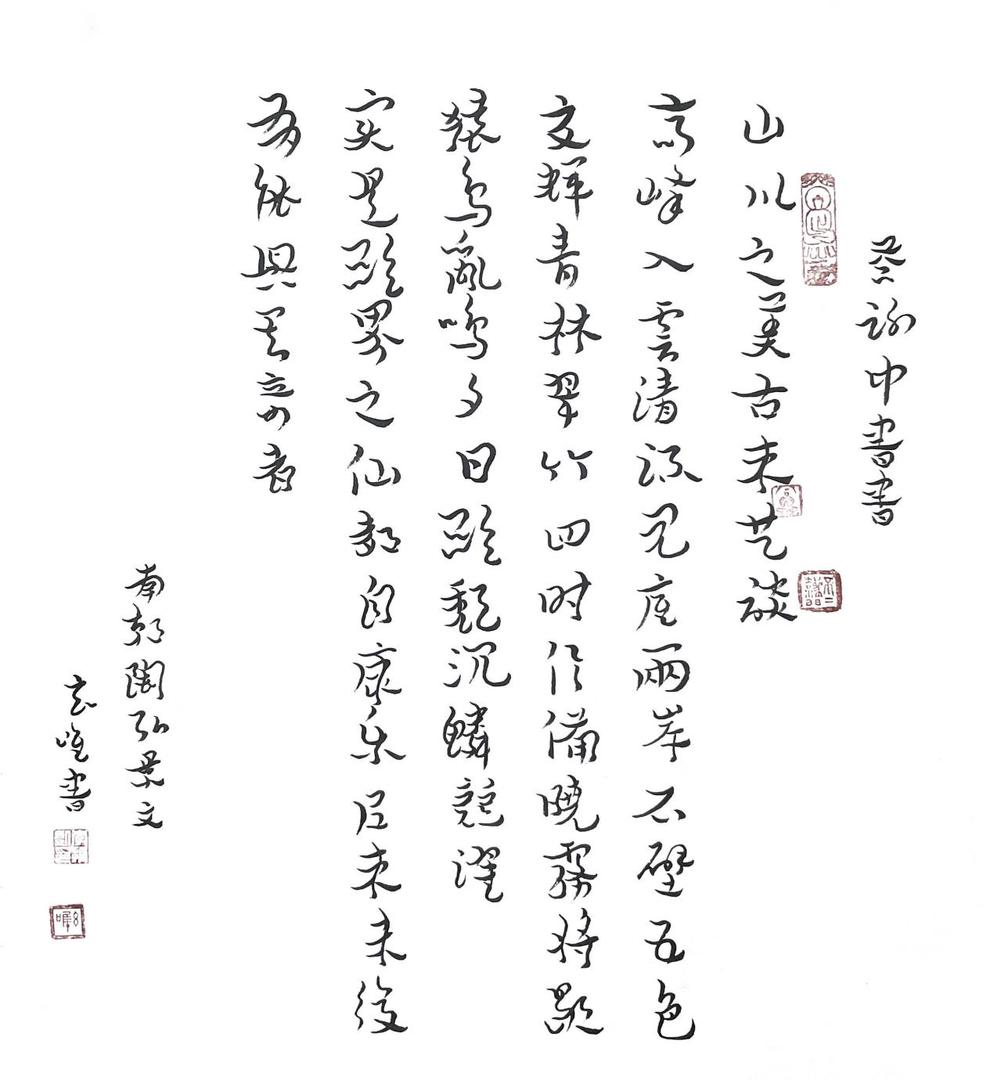 答謝中書書
山川之美古来共談
高峰入雲清流見底兩岸石壁五色
交輝青林翠竹四時俱備曉霧將歇
猿鳥亂鳴夕日欲頹沉鱗競躍
实是欲界之仙都自康乐以来未復
有能與其奇者
南朝陶弘景文
唯書